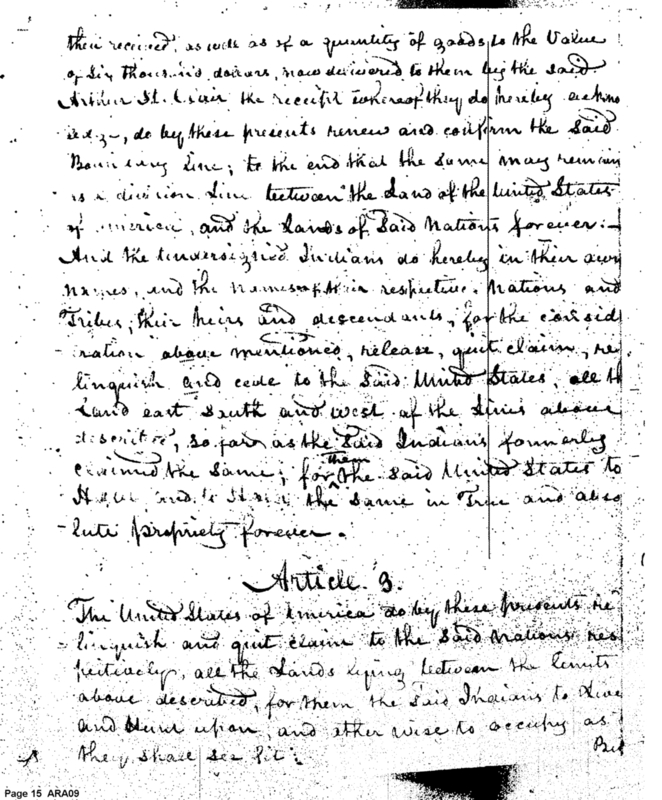 then received, as well as of a quantity of goods to the Value
of Six thousand dollars, now delivered to them by the said
Arthur St. Clair the receipt whereof they do hereby ackno
ledge, do by these presents renew and confirm the Said
Boundary line; to the end that the same may remain
as a division Line between the Land of the United States
of america, and the Lands of Said Nations forever:—
And the undersigned Indians do hereby in their own
names, and the names of their respective Nations and
Tribes, their heirs and descendants, for the consid
eration above mentioned, release, quit claim, re
linquish and cede to the Said United States, all th
Land east South and west of the Lines above
described, so far as the Said Indians formerly
claimed the Same; for them the Said United States to
Have and to Hold the same in True and abso
lute propriety forever.
Article. 3.
The United States of america do by these presents re
linquish and quit claim to the Said Nations res
pectively, all the Lands lying between the limits
above described, for them the Said Indians to Live
and Hunt upon, and other wise to occupy as
they shall see fit:
But
Page 15 ARA09